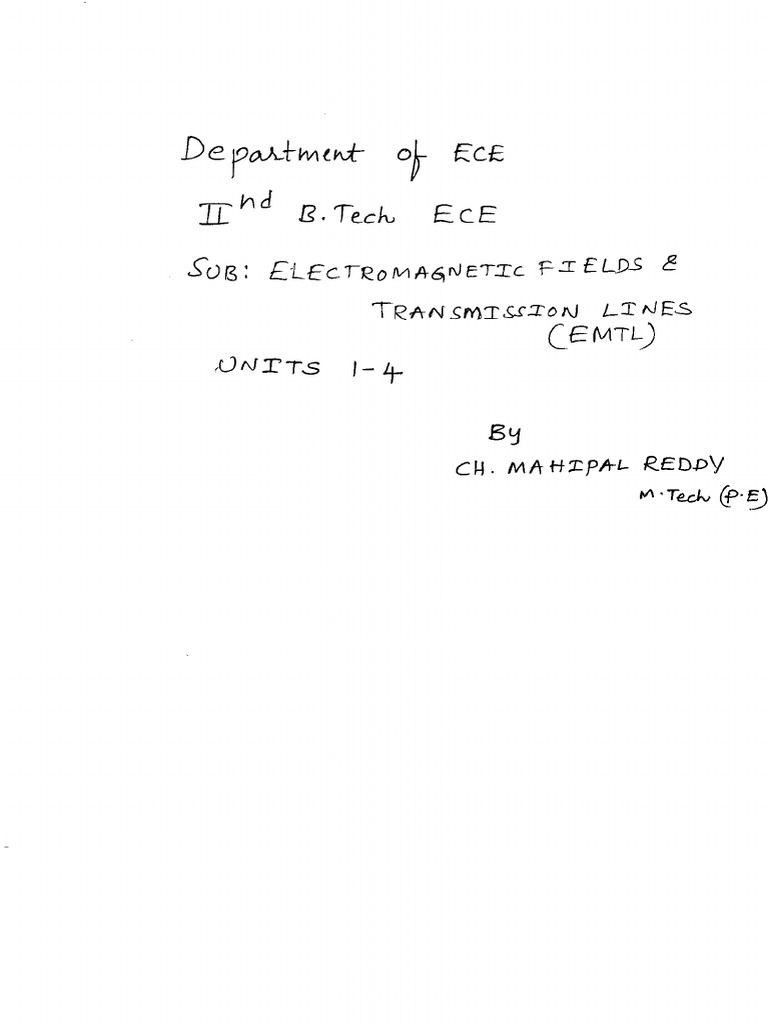 Department of ECE
IInd B.Tech ECE
SUB: ELECTROMAGNETIC FIELDS &
TRANSMISSION LINES
(EMTL)
UNITS 1-4
By
CH. MAHIPAL REDDY
M.Tech (P.E)